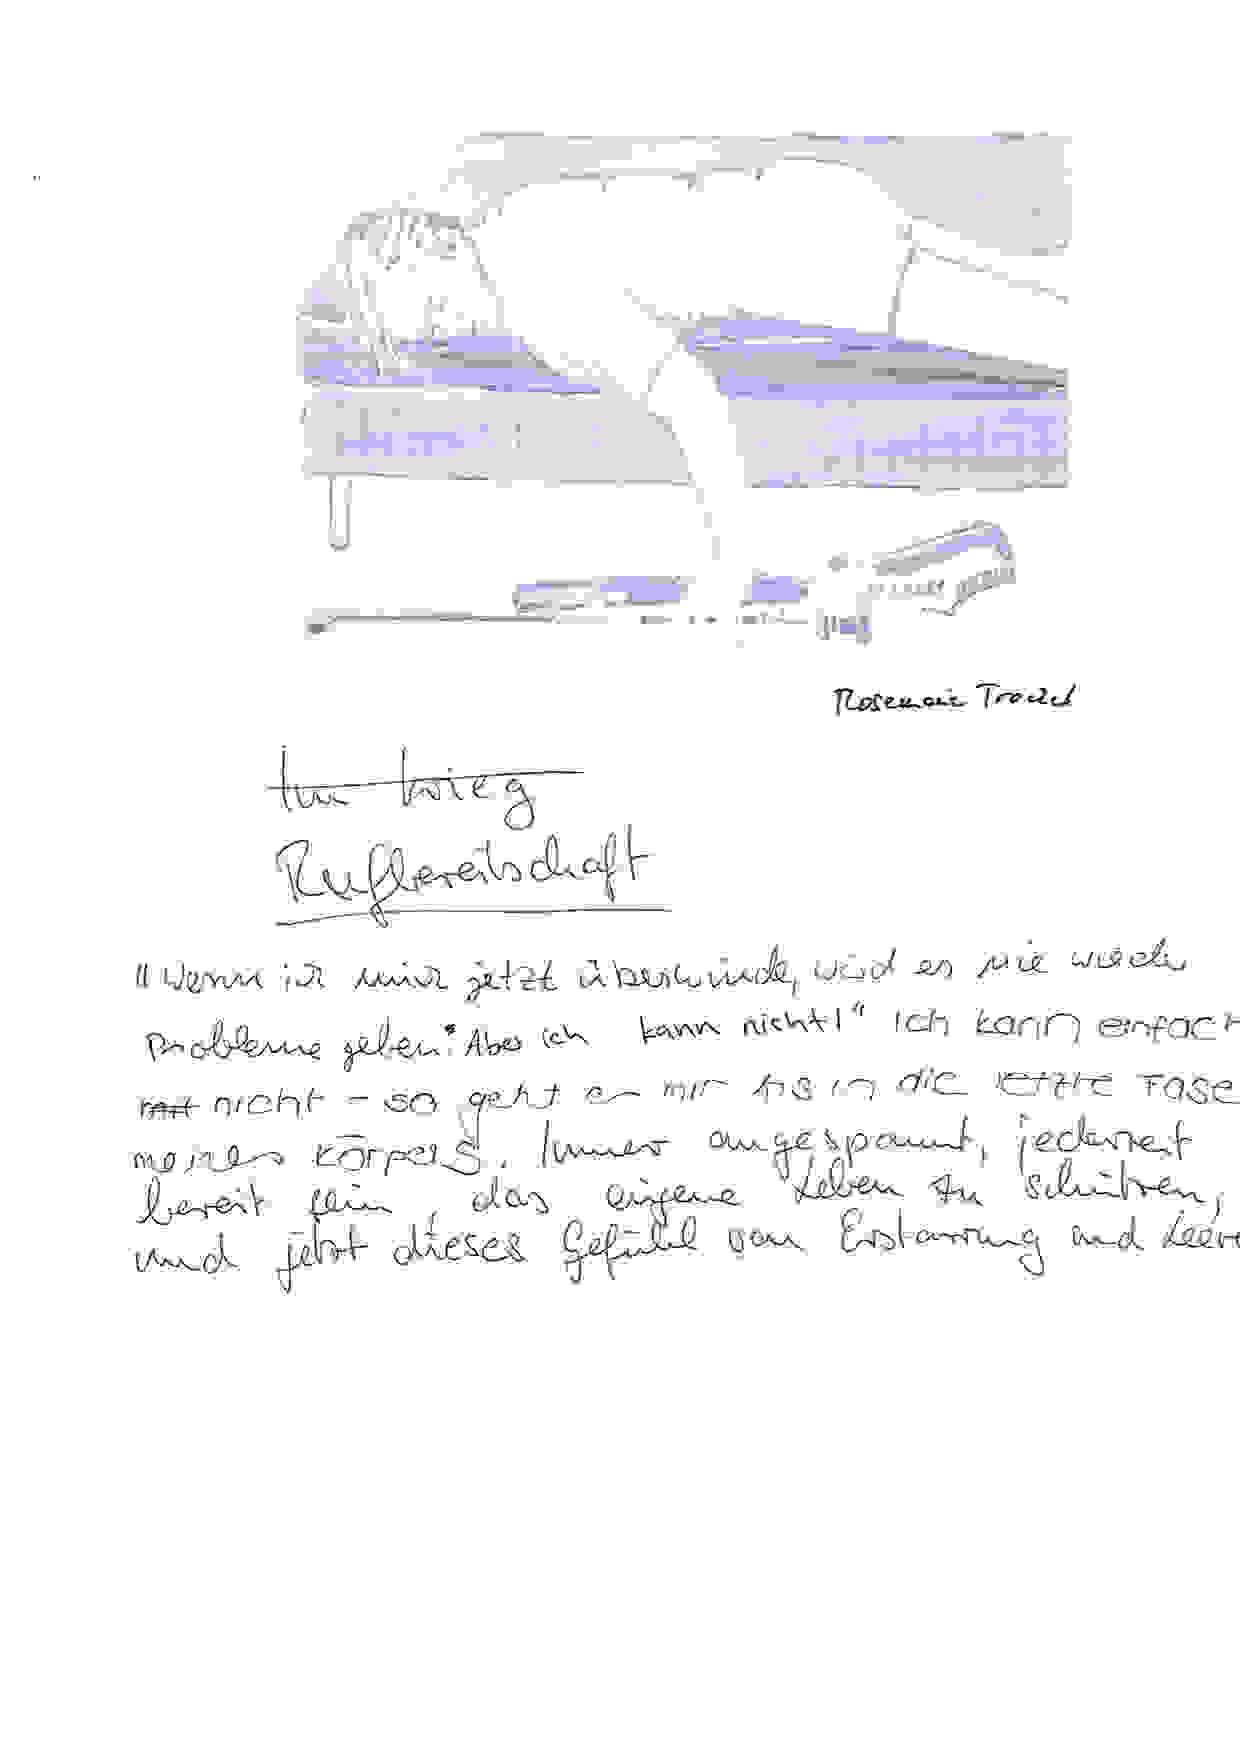 Rosemarie Trockel
Im Krieg
Rufbereitschaft
"Wenn ich mich jetzt überwinde, wird es nie wieder
Probleme geben." Aber ich kann nicht!" Ich kann einfach
nicht - so geht es mir bis in die letzte Fase
meines Körpers. Immer angespannt, jederzeit
bereit sein, das eigene Leben zu schützen,
und jetzt dieses Gefühl von Erstarrung und Leere